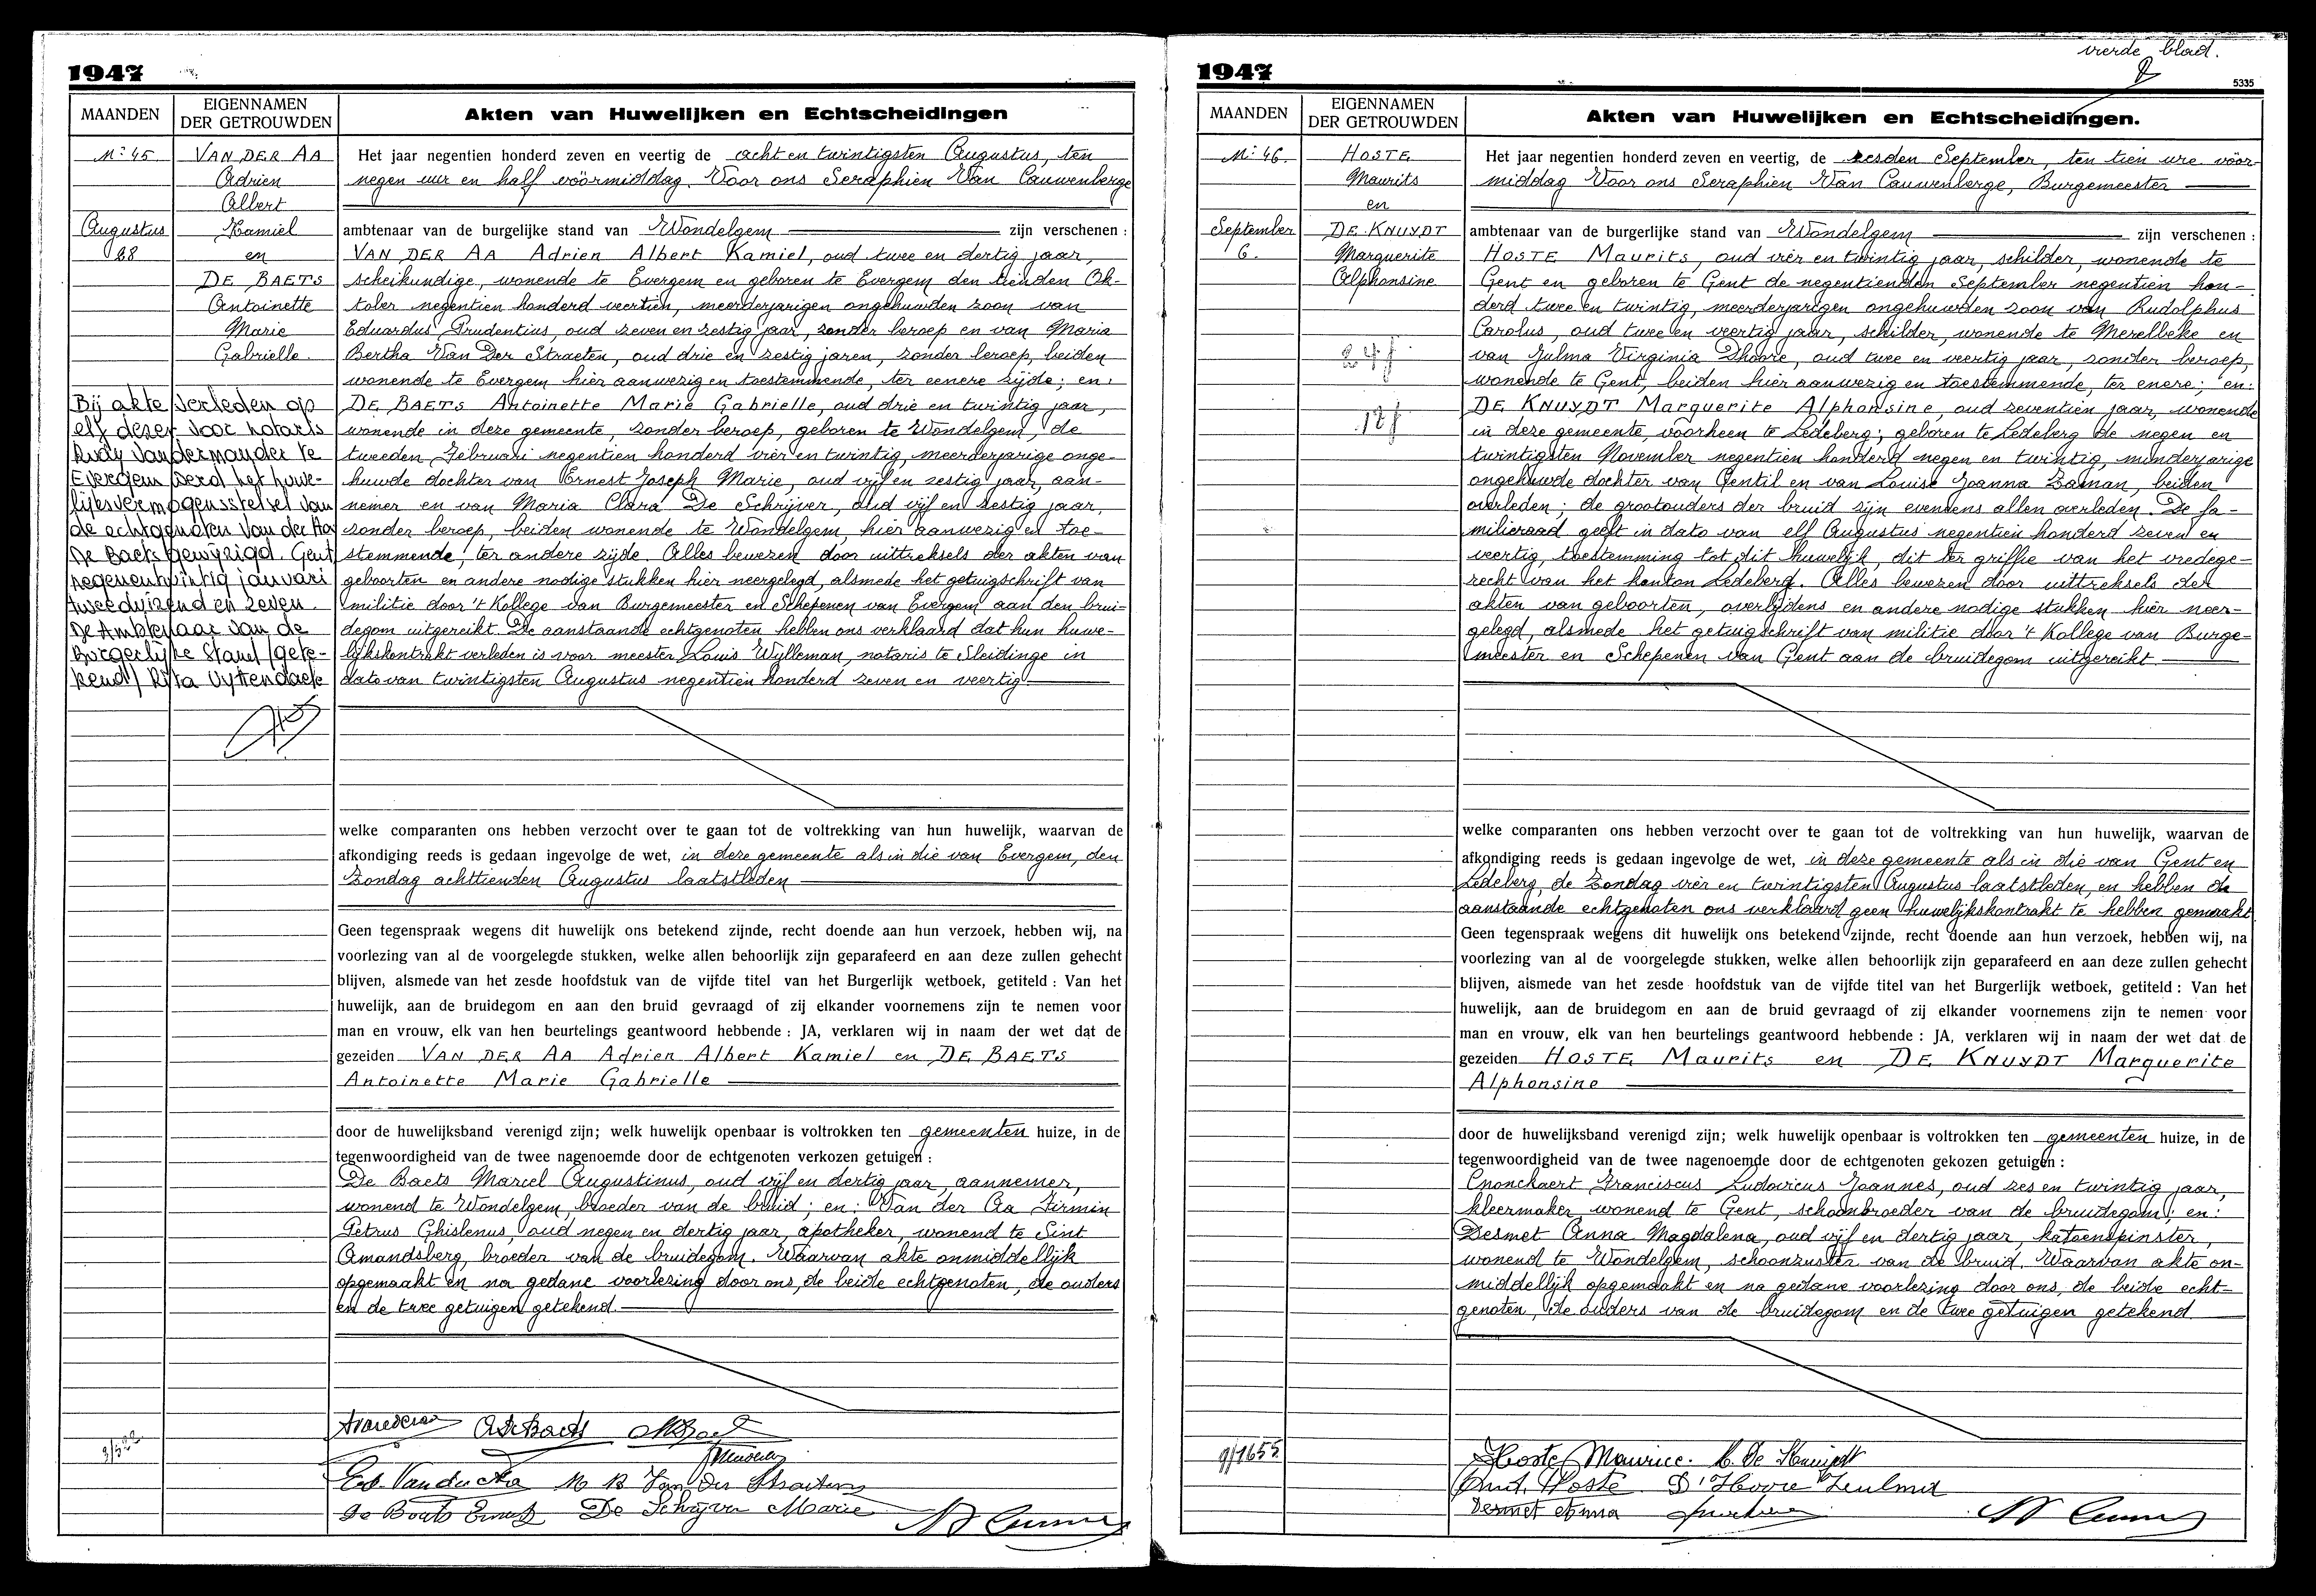 1947
MAANDEN
EIGENNAMEN
DER GETROUWDEN
Akten van Huwelijken en Echtscheidingen
No: 45
VAN DER AA
Adrien
Albert
Kamiel
en
DE BAETS
Antoinette
Marie
Gabrielle
Augustus
28
Bij akte verleden op
elf dezer voor notaris
Rudy Vandermander te
Evergem werd het huwe-
lijksvermogensstelsel van
de echtgenoten Van der Aa
De Baets gewijzigd. Gent
negenentwintig januari
tweeduizend en zeven.
De Ambtenaar van de
Burgerlijke Stand (gete-
kend)
Het jaar negentien honderd zeven en veertig de acht en twintigsten Augustus, ten
negen uur en half vóórmiddag. Voor ons Seraphien Van Cauwenberge
ambtenaar van de burgelijke stand van Wondelgem zijn verschenen :
VAN DER AA Adrien Albert Kamiel, oud twee en dertig jaar,
scheikundige, wonende te Evergem en geboren te Evergem den tienden Ok-
tober negentien honderd veertien, meerderjarigen ongehuwden zoon van
Eduardus Prudentius, oud zeven en zestig jaar, zonder beroep en van Maria
Bertha Van Der Straeten, oud drie en zestig jaren, zonder beroep, beiden
wonende te Evergem hier aanwezig en toestemmende, ter eenere zijde; en:
DE BAETS Antoinette Marie Gabrielle, oud drie en twintig jaar,
wonende in deze gemeente, zonder beroep, geboren te Wondelgem, de
tweeden Februari negentien honderd vier en twintig, meerderjarige onge-
huwde dochter van Ernest Joseph Marie, oud vijf en zestig jaar, aan-
nemer en van Maria Clara De Schrijver, oud vijf en zestig jaar,
zonder beroep, beiden wonende te Wondelgem, hier aanwezig en toe-
stemmende, ter andere zijde. Alles bewezen door uittreksels der akten van
geboorten en andere nodige stukken hier neergelegd, alsmede het getuigschrift van
militie door 't Kollege van Burgemeester en Schepenen van Evergem aan den brui-
degom uitgereikt. De aanstaande echtgenoten hebben ons verklaard dat hun huwe-
lijkskontrakt verleden is voor meester Louis Wylleman, notaris te Sleidinge in
dato van twintigsten Augustus negentien honderd zeven en veertig
welke comparanten ons hebben verzocht over te gaan tot de voltrekking van hun huwelijk, waarvan de
afkondiging reeds is gedaan ingevolge de wet, in deze gemeente als in die van Evergem, den
Zondag achttienden Augustus laatstleden
Geen tegenspraak wegens dit huwelijk ons betekend zijnde, recht doende aan hun verzoek, hebben wij, na
voorlezing van al de voorgelegde stukken, welke allen behoorlijk zijn geparafeerd en aan deze zullen gehecht
blijven, alsmede van het zesde hoofdstuk van de vijfde titel van het Burgerlijk wetboek, getiteld : Van het
huwelijk, aan de bruidegom en aan den bruid gevraagd of zij elkander voornemens zijn te nemen voor
man en vrouw, elk van hen beurtelings geantwoord hebbende : JA, verklaren wij in naam der wet dat de
gezeiden VAN DER AA Adrien Albert Kamiel en DE BAETS
Antoinette Marie Gabrielle
door de huwelijksband verenigd zijn; welk huwelijk openbaar is voltrokken ten gemeenten huize, in de
tegenwoordigheid van de twee nagenoemde door de echtgenoten verkozen getuigen :
De Baets Marcel Augustinus, oud vijf en dertig jaar, aannemer,
wonend te Wondelgem, broeder van de bruid; en: Van der Aa Firmin
Petrus Ghislenus, oud negen en dertig jaar, apotheker, wonend te Sint
Amandsberg, broeder van de bruidegom. Waarvan akte onmiddellijk
opgemaakt en na gedane voorlezing door ons, de beide echtgenoten, de ouders
en de twee getuigen getekend.
De Baets Ernest De Schrijver Marie
1947
vierde blad.
5335
MAANDEN
EIGENNAMEN
DER GETROUWDEN
Akten van Huwelijken en Echtscheidingen.
No: 46.
HOSTE
Maurits
en
DE KNUYDT
Marguerite
Alphonsine
September
6.
Het jaar negentien honderd zeven en veertig, de zesden September, ten tien ure vóór-
middag Voor ons Seraphien Van Cauwenberge, Burgemeester
ambtenaar van de burgerlijke stand van Wondelgem zijn verschenen :
HOSTE Maurits, oud vier en twintig jaar, schilder, wonende te
Gent en geboren te Gent de negentienden September negentien hon-
derd twee en twintig, meerderjarigen ongehuwden zoon van Rudolphus
Carolus, oud twee en veertig jaar, schilder, wonende te Merelbeke en
van Julma Virginia Dhoore, oud twee en veertig jaar, zonder beroep,
wonende te Gent, beiden hier aanwezig en toestemmende, ter enere; en:
DE KNUYDT Marguerite Alphonsine, oud zeventien jaar, wonende
in deze gemeente, voorheen te Ledeberg; geboren te Ledeberg de negen en
twintigsten November negentien honderd negen en twintig, minderjarige
ongehuwde dochter van Gentil en van Louise Joanna Zaman, beiden
overleden; de grootouders der bruid zijn evendens allen overleden. De fa-
milieraad geeft in dato van elf Augustus negentien honderd zeven en
veertig, toestemming tot dit huwelijk, dit ter griffie van het vredege-
recht van het kanton Ledeberg. Alles bewezen door uittreksels der
akten van geboorten, overlijdens en andere nodige stukken hier neer-
gelegd, alsmede het getuigschrift van militie door 't Kollege van Burge-
meester en Schepenen van Gent aan de bruidegom uitgereikt
welke comparanten ons hebben verzocht over te gaan tot de voltrekking van hun huwelijk, waarvan de
afkondiging reeds is gedaan ingevolge de wet, in deze gemeente als in die van Gent en
Ledeberg, de Zondag vier en twintigsten Augustus laatstleden, en hebben de
aanstaande echtgenoten ons verklaard geen huwelijkskontrakt te hebben gemaakt
Geen tegenspraak wegens dit huwelijk ons betekend zijnde, recht doende aan hun verzoek, hebben wij, na
voorlezing van al de voorgelegde stukken, welke allen behoorlijk zijn geparafeerd en aan deze zullen gehecht
blijven, alsmede van het zesde hoofdstuk van de vijfde titel van het Burgerlijk wetboek, getiteld : Van het
huwelijk, aan de bruidegom en aan de bruid gevraagd of zij elkander voornemens zijn te nemen voor
man en vrouw, elk van hen beurtelings geantwoord hebbende : JA, verklaren wij in naam der wet dat de
gezeiden HOSTE Maurits en DE KNUYDT Marguerite
Alphonsine
door de huwelijksband verenigd zijn; welk huwelijk openbaar is voltrokken ten gemeenten huize, in de
tegenwoordigheid van de twee nagenoemde door de echtgenoten gekozen getuigen :
Cnonckaert Franciscus Ludovicus Joannes, oud zes en twintig jaar,
kleermaker wonend te Gent, schoonbroeder van de bruidegom; en:
Desmet Anna Magdalena, oud vijf en dertig jaar, katoenspinster,
wonend te Wondelgem, schoonzuster van de bruid. Waarvan akte on-
middellijk opgemaakt en na gedane voorlezing door ons, de beide echt-
genoten, de ouders van de bruidegom en de twee getuigen getekend
Hoste Maurice.
Desmet Anna